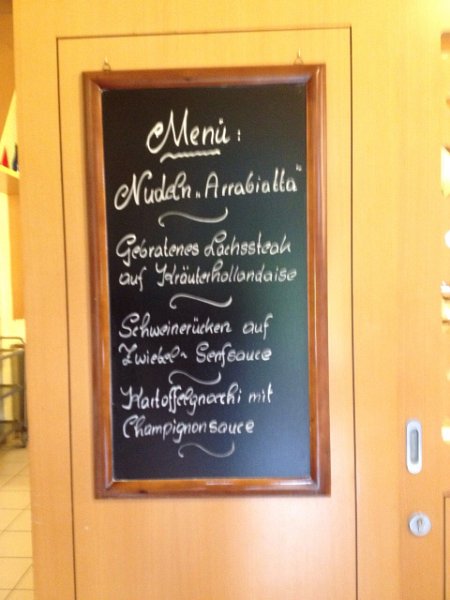 Menü:
Nudeln „Arrabiatta“
Gebratenes Lachssteak
auf Kräuterhollandaise
Schweinerücken auf
Zwiebel- Senfsauce
Kartoffelgnocchi mit
Champignonsauce